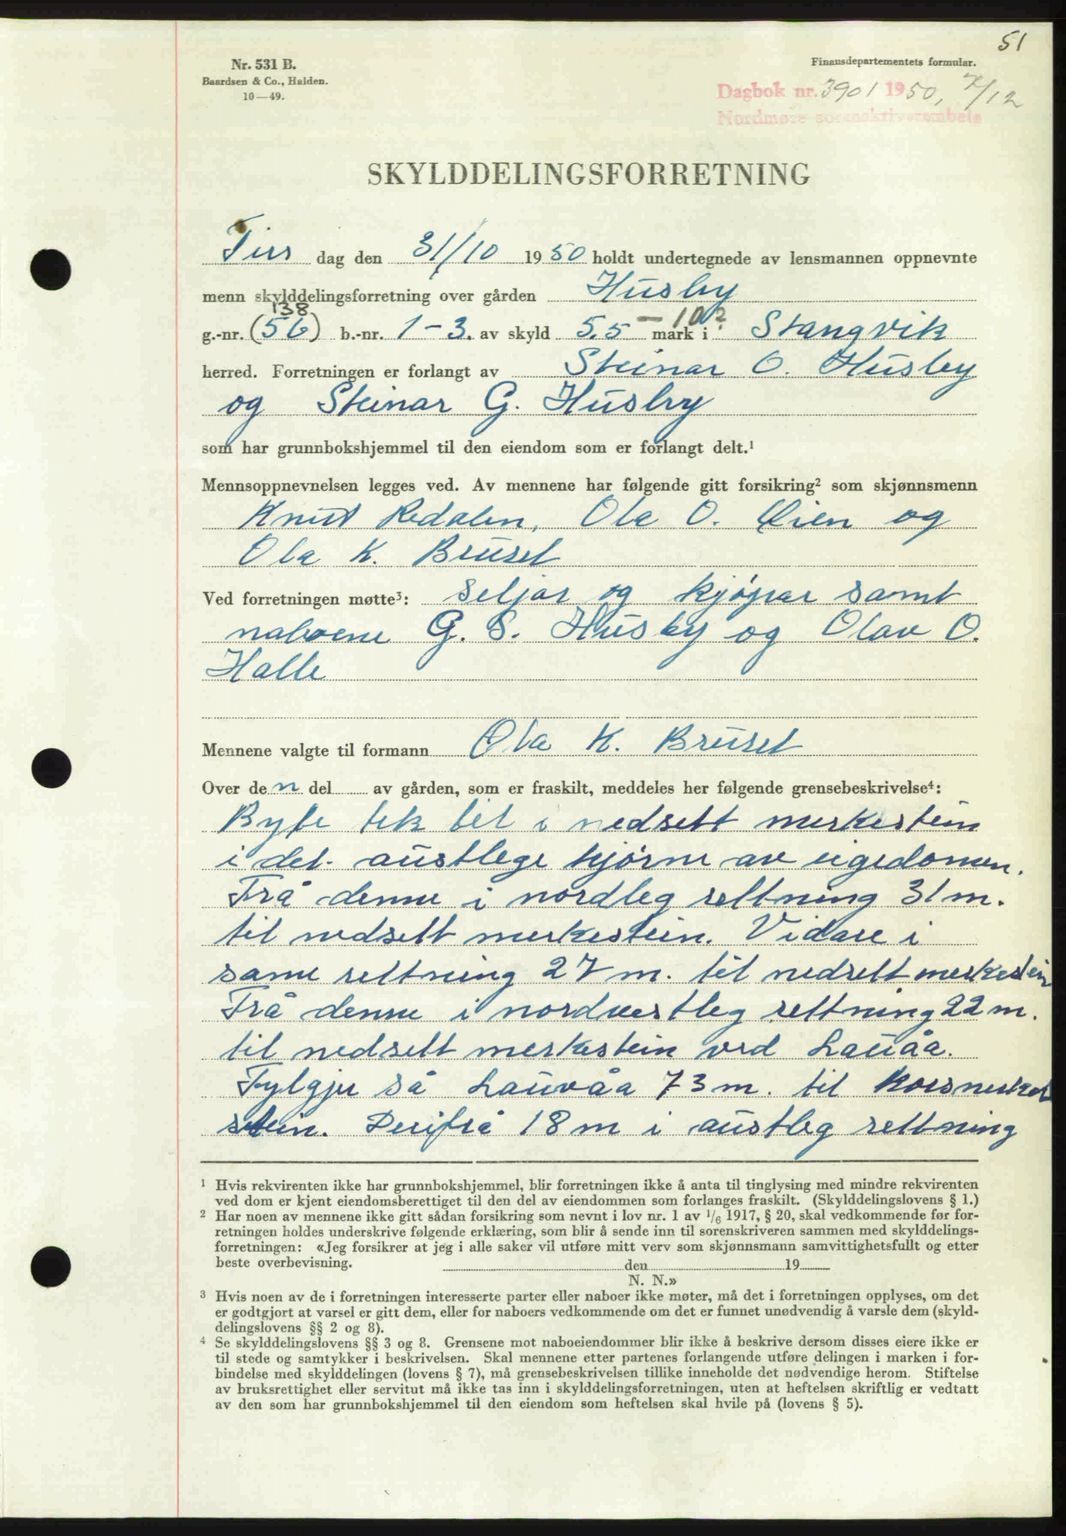 51
Nr. 531 B.
Baardsen & Co., Halden.
10—49.
Finansdepartementets formular.
Dagbok nr. 3901 1950, 7/12
Nordmøre sorenskriverembete
SKYLDDELINGSFORRETNING
Tirs dag den 31/10 1950 holdt undertegnede av lensmannen oppnevnte
menn skylddelingsforretning over gården Husby
138 — 10?
g.-nr. (56) b.-nr. 1-3. av skyld 5.5 mark i Stangvik
herred. Forretningen er forlangt av Steinar O. Husby
og Steinar G. Husby
som har grunnbokshjemmel til den eiendom som er forlangt delt.¹
Mennsoppnevnelsen legges ved. Av mennene har følgende gitt forsikring² som skjønnsmenn
Knut Redalen, Ola O. Øien og
Ola K. Bruset
Ved forretningen møtte³: Seljar og kjøpar samt
naboene G. S. Husby og Olav O.
Halle
Mennene valgte til formann Ola K. Bruset
Over den del av gården, som er fraskilt, meddeles her følgende grensebeskrivelse⁴:
Byte tek til i nedsett merkestein
i det austlege hjørne av eigedomen.
Frå denne i nordleg rettning 31 m.
til nedsett merkestein. Vidare i
same rettning 27 m. til nedsett merkestein
Frå denne i nordvestleg rettning 22 m.
til nedsett merkestein ved Lauåa.
Fylgjer så Lauvåa 73 m. til
stein. Derifrå 18 m i austleg rettning
¹ Hvis rekvirenten ikke har grunnbokshjemmel, blir forretningen ikke å anta til tinglysing med mindre rekvirenten
ved dom er kjent eiendomsberettiget til den del av eiendommen som forlanges fraskilt. (Skylddelingslovens § 1.)
² Har noen av mennene ikke gitt sådan forsikring som nevnt i lov nr. 1 av 1/6 1917, § 20, skal vedkommende før for-
retningen holdes underskrive følgende erklæring, som blir å sende inn til sorenskriveren sammen med skylddelings-
forretningen: «Jeg forsikrer at jeg i alle saker vil utføre mitt verv som skjønnsmann samvittighetsfullt og etter
beste overbevisning. den 19
N. N.»
³ Hvis noen av de i forretningen interesserte parter eller naboer ikke møter, må det i forretningen opplyses, om det
er godtgjort at varsel er gitt dem, eller for naboers vedkommende om det er funnet unødvendig å varsle dem (skyld-
delingslovens §§ 2 og 8).
⁴ Se skylddelingslovens §§ 3 og 8. Grensene mot naboeiendommer blir ikke å beskrive dersom disses eiere ikke er
til stede og samtykker i beskrivelsen. Skal mennene etter partenes forlangende utføre delingen i marken i for-
bindelse med skylddelingen (lovens § 7), må grensebeskrivelsen tillike inneholde det nødvendige herom. Stiftelse
av bruksrettighet eller servitut må ikke tas inn i skylddelingsforretningen, uten at heftelsen skriftlig er vedtatt
av den som har grunnbokshjemmel til den eiendom som heftelsen skal hvile på (lovens § 5).